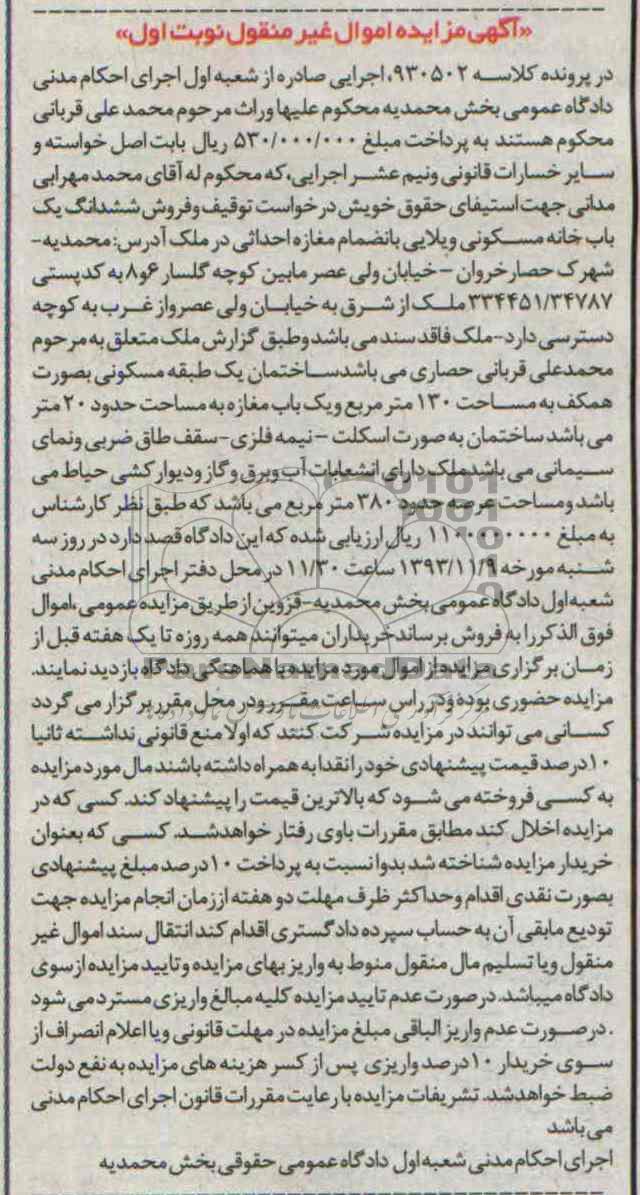 «آگهی مزایده اموال غیر منقول نوبت اول»
در پرونده کلاسه ۹۳۰۵۰۲، اجرایی صادره از شعبه اول اجرای احکام مدنی
دادگاه عمومی بخش محمدیه محکوم علیها وراث مرحوم محمد علی قربانی
محکوم هستند به پرداخت مبلغ ۵۳۰/۰۰۰/۰۰۰ ریال بابت اصل خواسته و
سایر خسارات قانونی ونیم عشر اجرایی،که محکوم له آقای محمد مهرابی
مدانی جهت استیفای حقوق خویش درخواست توقیف وفروش ششدانگ یک
باب خانه مسکونی ویلایی بانضمام مغازه احداثی در ملک آدرس: محمدیه-
شهرک حصارخروان - خیابان ولی عصر مابین کوچه گلسار ۶و۸ به کدپستی
۳۳۴۴۵۱/۳۴۷۸۷ ملک از شرق به خیابان ولی عصرواز غرب به کوچه
دسترسی دارد-ملک فاقد سند می باشد وطبق گزارش ملک متعلق به مرحوم
محمدعلی قربانی حصاری می باشد ساختمان یک طبقه مسکونی بصورت
همکف به مساحت ۱۳۰ متر مربع ویک باب مغازه به مساحت حدود ۲۰ متر
می باشد ساختمان به صورت اسکلت - نیمه فلزی-سقف طاق ضربی ونمای
سیمانی می باشد ملک دارای انشعابات آب وبرق وگاز ودیوارکشی حیاط می
باشد ومساحت عرصه حدود ۳۸۰ متر مربع می باشد که طبق نظر کارشناس
به مبلغ ۱۱۰۰۰۰۰۰۰۰ ریال ارزیابی شده که این دادگاه قصد دارد در روز سه
شنبه مورخه ۱۳۹۳/۱۱/۹ ساعت ۱۱/۳۰ در محل دفتر اجرای احکام مدنی
شعبه اول دادگاه عمومی بخش محمدیه-قزوین از طریق مزایده عمومی ،اموال
فوق الذکر را به فروش برساند خریداران میتوانند همه روزه تا یک هفته قبل از
زمان برگزاری مزایده از اموال مورد مزایده با هماهنگی دادگاه بازدید نمایند.
مزایده حضوری بوده ودر راس ساعت مقرر ودر محل مقرر برگزار می گردد
کسانی می توانند در مزایده شرکت کنند که اولا منع قانونی نداشته ثانیا
۱۰درصد قیمت پیشنهادی خود را نقدا به همراه داشته باشند مال مورد مزایده
به کسی فروخته می شود که بالاترین قیمت را پیشنهاد کند. کسی که در
مزایده اخلال کند مطابق مقررات باوی رفتار خواهدشد. کسی که بعنوان
خریدار مزایده شناخته شد بدوا نسبت به پرداخت ۱۰درصد مبلغ پیشنهادی
بصورت نقدی اقدام وحداکثر ظرف مهلت دو هفته اززمان انجام مزایده جهت
تودیع مابقی آن به حساب سپرده دادگستری اقدام کند انتقال سند اموال غیر
منقول ویا تسلیم مال منقول منوط به واریز بهای مزایده وتایید مزایده ازسوی
دادگاه میباشد. درصورت عدم تایید مزایده کلیه مبالغ واریزی مسترد می شود
. درصورت عدم واریز الباقی مبلغ مزایده در مهلت قانونی ویا اعلام انصراف از
سوی خریدار ۱۰درصد واریزی پس از کسر هزینه های مزایده به نفع دولت
ضبط خواهدشد. تشریفات مزایده با رعایت مقررات قانون اجرای احکام مدنی
می باشد
اجرای احکام مدنی شعبه اول دادگاه عمومی حقوقی بخش محمدیه